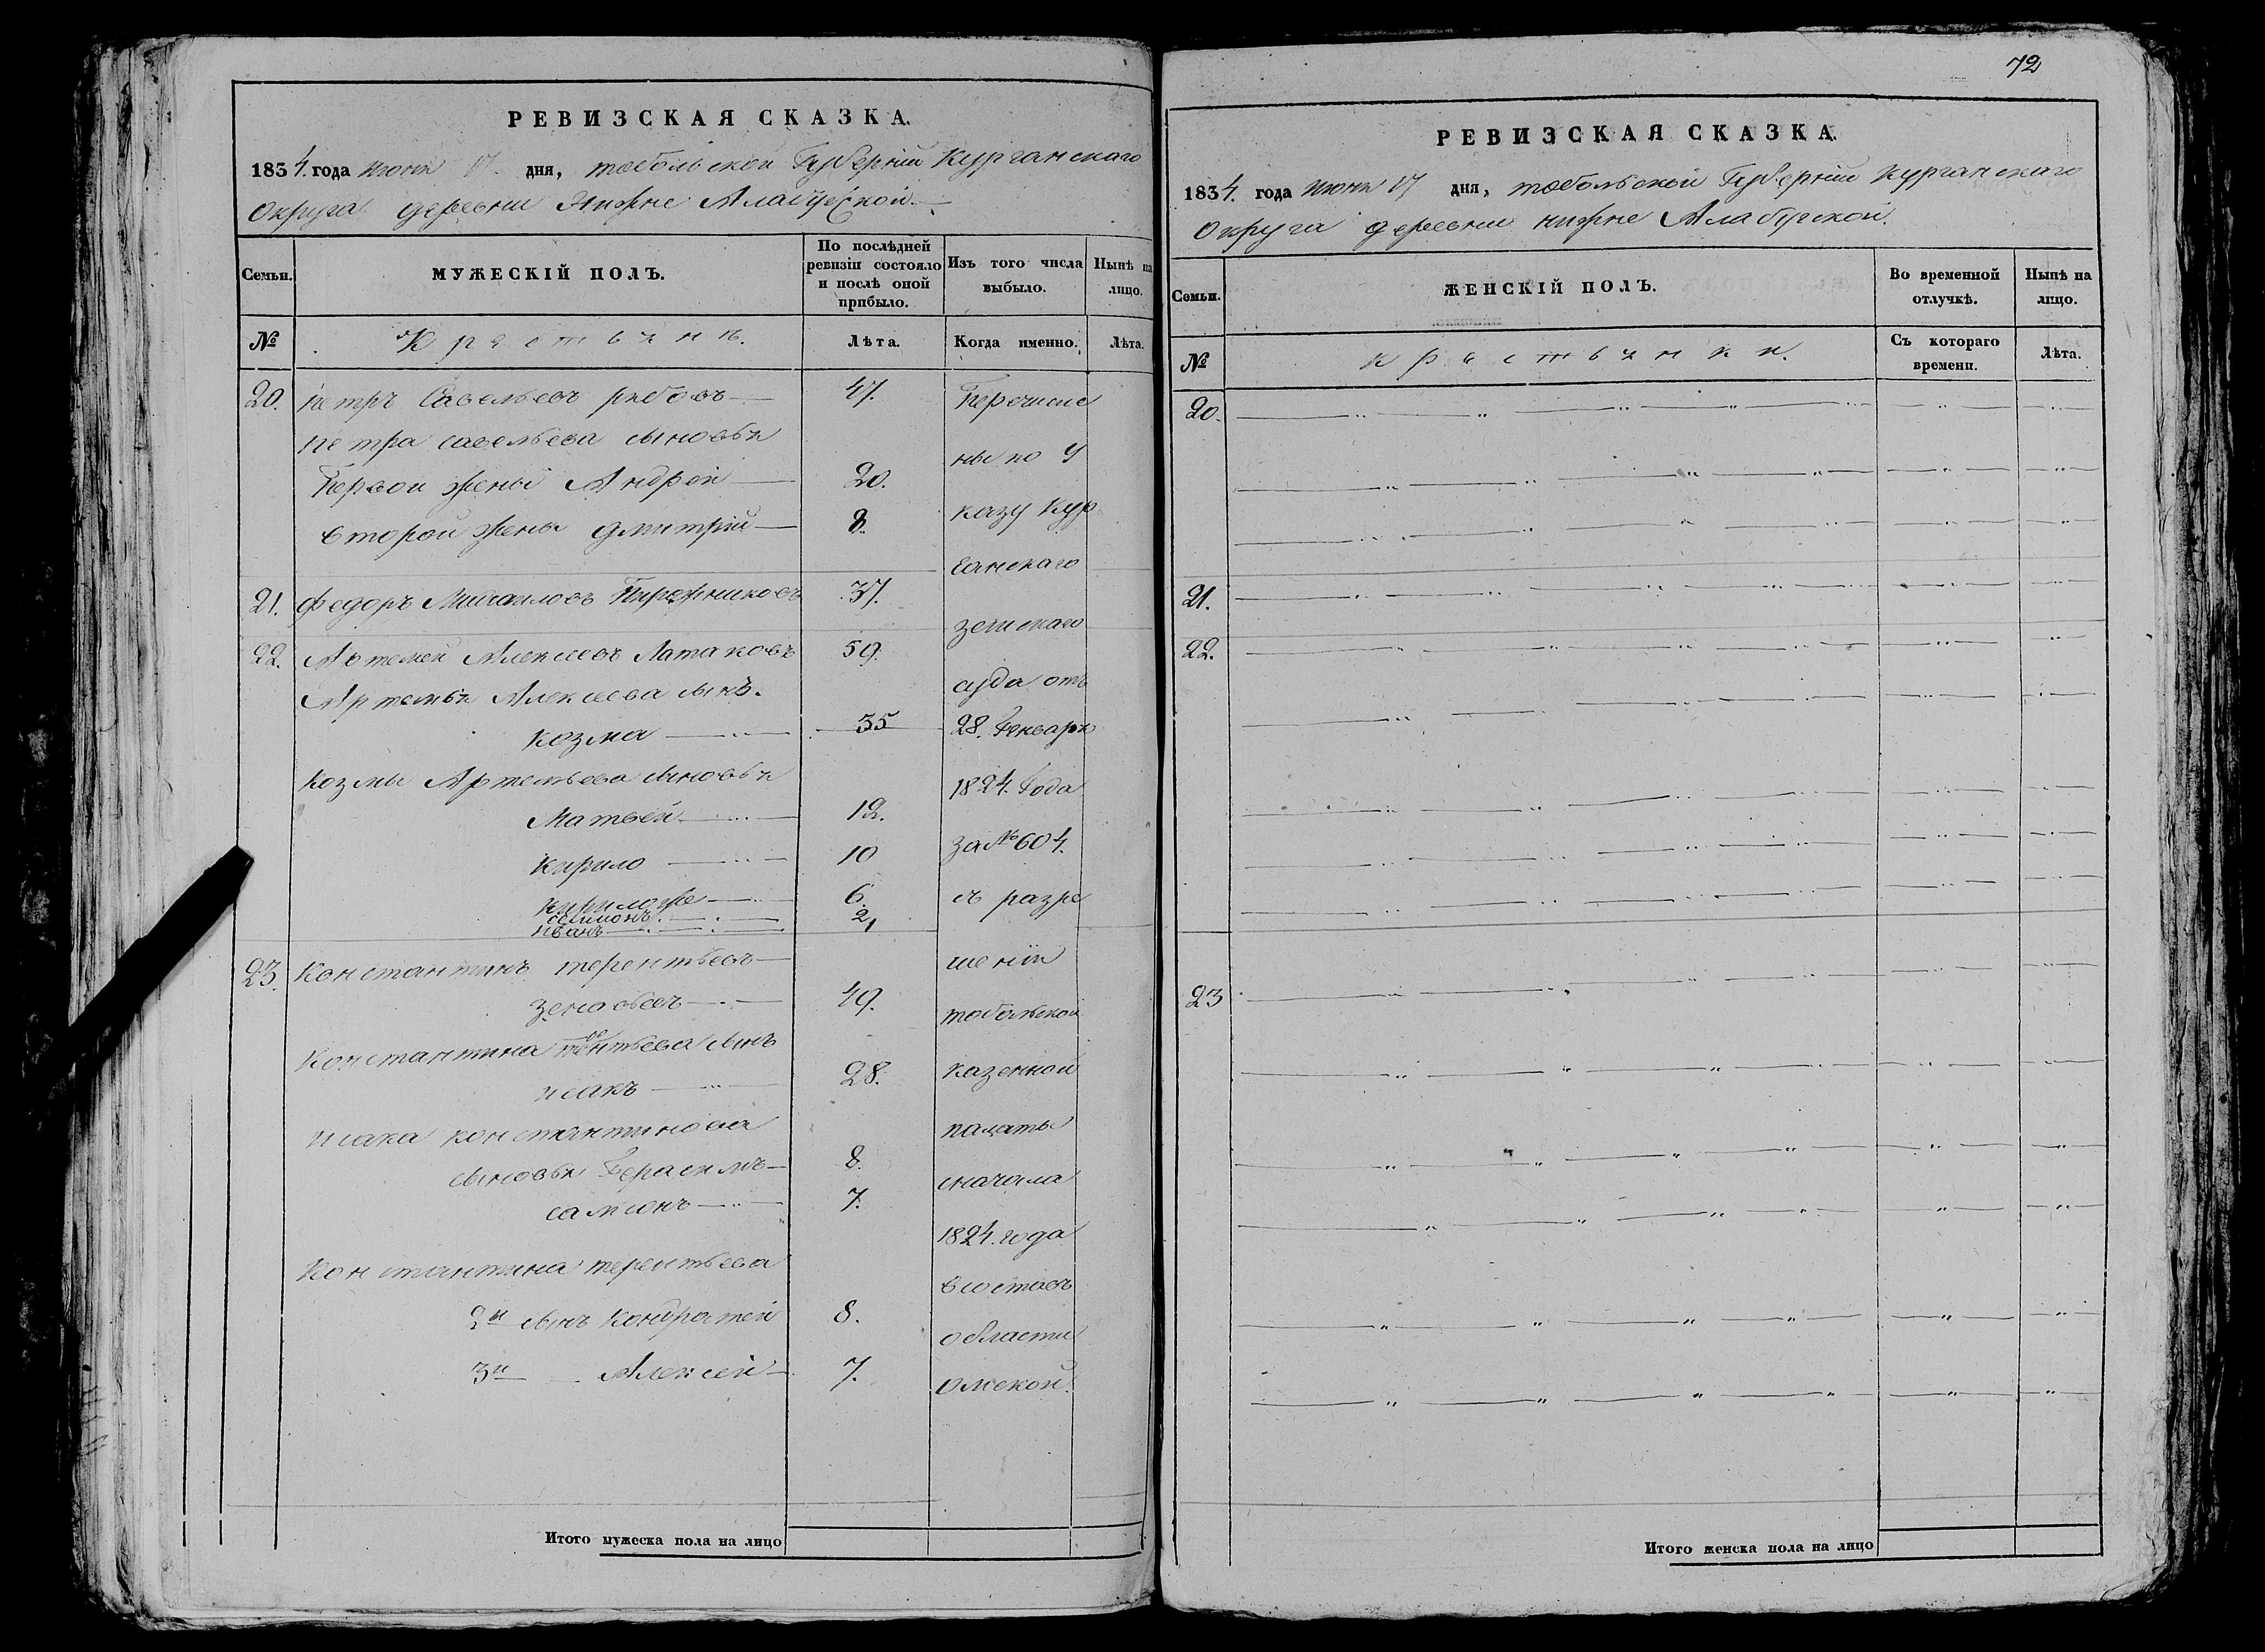 РЕВИЗСКАЯ СКАЗКА.
1834. года июня 17. дня, тобольской Губернiи Курганскаго
Округа деревни Нижне Алабугской.
Семьи.
МУЖЕСКІЙ ПОЛЪ.
По послѣдней ревизіи состояло и послѣ оной прибыло.
Изъ того числа выбыло.
Нынѣ на лицо.
№
Крестьянъ.
Лѣта.
Когда именно.
Лѣта.
20. петръ Савельевъ рябовъ 47.
петра савельева сыновья
Первой жены Андрей 20.
второй жены дмитрій 8.
21. федоръ Михаиловъ Пирожниковъ 37.
22. Артемей Алексеевъ Латаковъ 59.
Артемья Алексеева сынъ.
козма 35
козмы Артемьева сыновья
Матвей 12.
кирило 10
кирило же 6.
селимонъ
иванъ 2,
23. Константинъ терентьевъ
зеновьевъ 49.
Константина терентьева сынъ
исакъ 28.
исака константинова
сыновья Герасимъ 8.
самсонъ 7.
Константина терентьева
2й сынъ кондратей 8.
3й Алексей 7.
Перечисле
ны по у
казу Кур
ганскаго
земскаго
суда отъ
28. Генваря
1824. Года
за № 604.
съ разре
шенiи
тобольской
казенной
палаты
сначала
1824. года
всоставъ
области
омской.
Итого мужеска пола на лицо
72
РЕВИЗСКАЯ СКАЗКА.
1834. года июня 17 дня, тобольской Губернiи Курганскаго
Округа деревни нижне Алабугской.
Семьи.
ЖЕНСКІЙ ПОЛЪ.
Во временной отлучкѣ.
Нынѣ на лицо.
№
крестьянки.
Съ котораго времени.
Лѣта.
20.
21.
22.
23
Итого женска пола на лицо